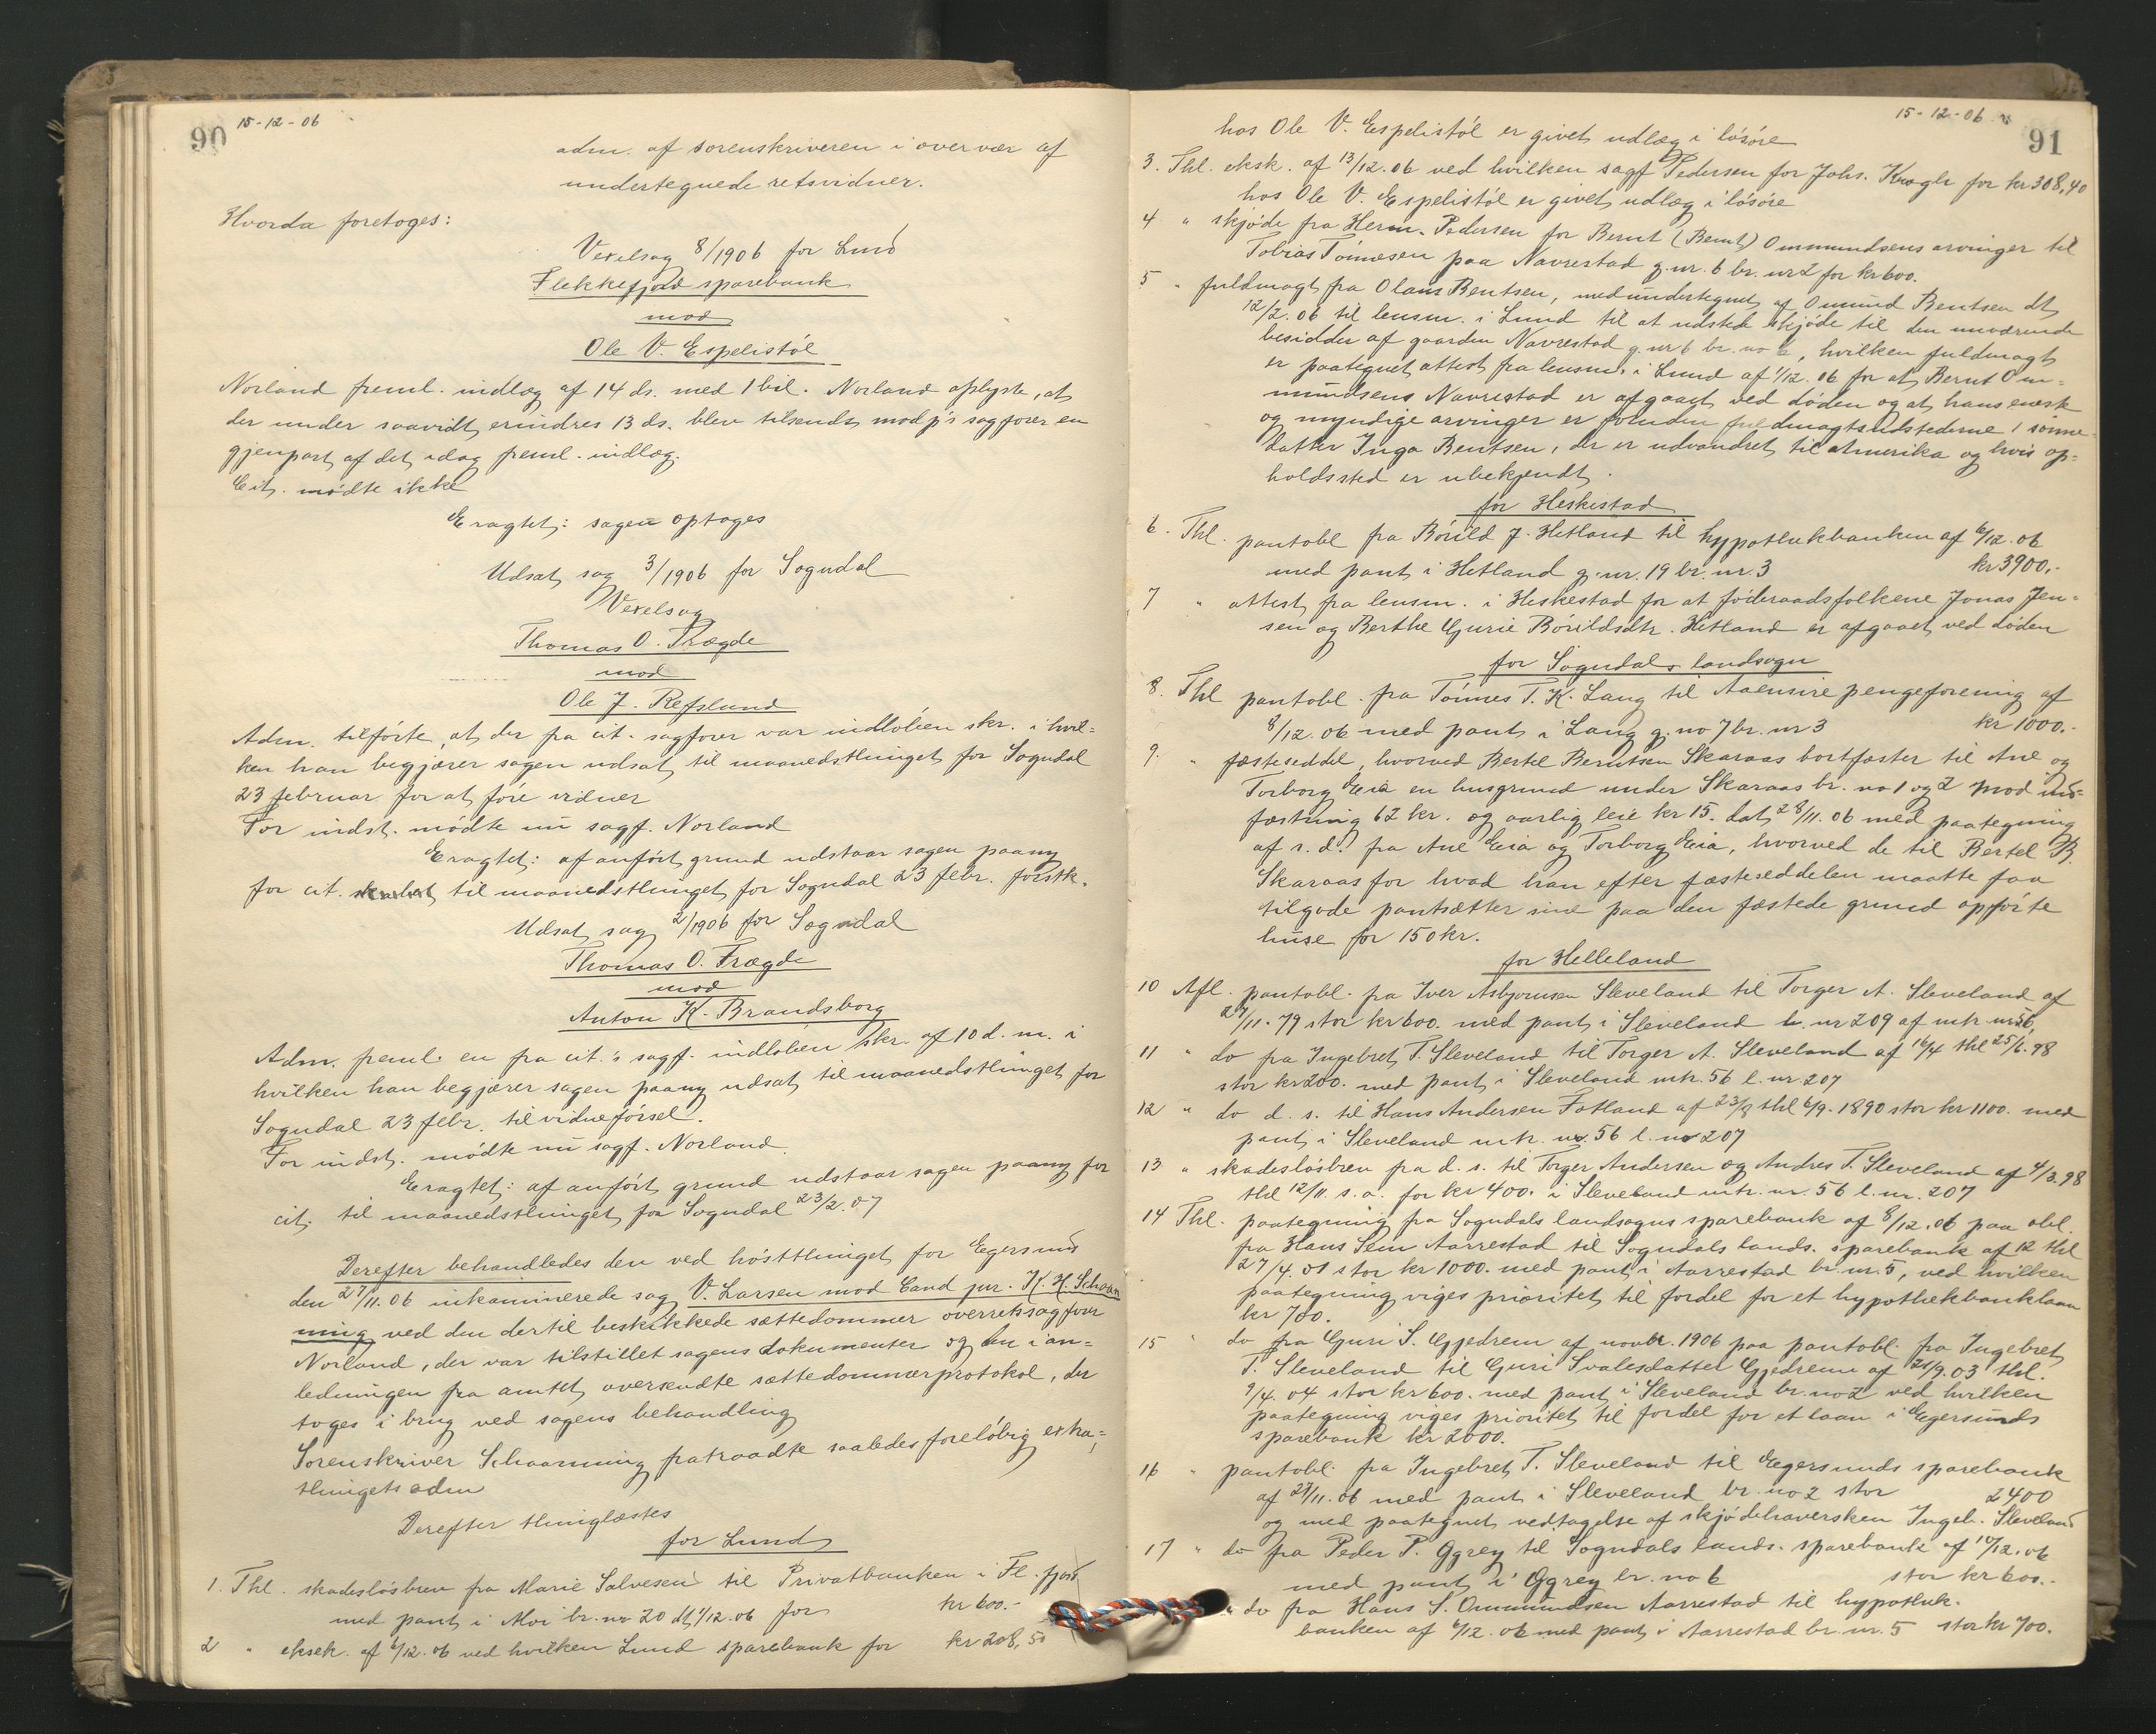 90 15-12-06
adm. af sorenskriveren i overvær af
undertegnede retsvidner.
Hvorda foretoges:
Vexelsag 8/1906 for Lund
Flekkefjord sparebank
mod
Ole V. Espelistöl
Norland freml. indlæg af 14 ds. med 1 bil. Norland oplyste, at
der under saavidt erindres 13 ds. blev tilsendt modp's sagfører en
gjenpart af det idag freml. indlæg.
Cit. mödte ikke
Eragtet: sagen optages
Udsat sag 3/1906 for Sogndal
Vexelsag
Thomas O. Frægde
mod
Ole J. Refsland
Adm. tilförte, at der fra cit. sagfører var indlöben skr. i hvil=
ken han begjærer sagen udsat til maanedsthinget for Sogndal
23 februar for at före vidner
For indst. mödte nu sagf. Norland
Eragtet: af anfört grund udstaar sagen paany
for cit. til maanedsthinget for Sogndal 23 febr. förstk.
Udsat sag 2/1906 for Sogndal
Thomas O. Frægde
mod
Anton K. Brandsborg
Adm. freml. en fra cit.'s sagf. indlöben skr. af 10 d. m. i
hvilken han begjærer sagen paany udsat til maanedsthinget for
Sogndal 23 febr. til vidneförsel.
For indst. mödte nu sagf. Norland.
Eragtet: af anfört grund udstaar sagen paany for
cit. til maanedsthinget for Sogndal 23/2. 07
Derefter behandledes den ved hösttinget for Egersund
den 27/11. 06 inkaminerede sag V. Larsen mod Cand jur. K. H. Schaan
ning ved den dertil beskikkede sættedommer overretssagfører
Norland, der var tilstillet sagens dokumenter og den i an=
ledningen fra amtet oversendte sættedommerprotokol, der
toges i brug ved sagens behandling
Sorenskriver Schaanning fratraadte saaledes forelöbig extra=
thingets adm
Derefter thinglæstes
for Lund
1. Thl. skadeslösbrev fra Marie Salvesen til Privatbanken i Fl.fjord
med pant i Moi br. no 20 dt 1/12. 06 for kr 600.-
2 " eksek. af 6/12. 06 ved hvilken Lund sparebank for kr 208,50
15-12-06 91
hos Ole V. Espelistöl er givet udlæg i lösöre
3. Thl. eksk. af 13/12. 06 ved hvilken sagf Pedersen for Johs. Kragh for kr 308,40
hos Ole V. Espelistöl er givet udlæg i lösöre
4 " skjöde fra Herm. Pedersen for Bernt (Bernt) Ommundsens arvinger til
Tobias Tönnesen paa Navrestad g. nr. 6 br. nr 2 for kr 600.
5 " fuldmagt fra Olaus Bentsen, medundertegnet af Omund Bentsen dt
12/2. 06 til lensm. i Lund til at udstede skjöde til den nuværende
besidder af gaarden Navrestad g. nr 6 br. no 2, hvilken fuldmagt
er paategnet attest fra lensm. i Lund af 1/12. 06 for at Bernt Om=
mundsens Navrestad er afgaaet ved döden og at hans eneste
og myndige arvinger er foruden fuldmagtsudstederne 1 sönne-
datter Inga Bentsen, der er udvandret til Amerika og hvis op=
holdssted er ubekjendt.
for Heskestad
6. Thl. pantobl fra Börild J. Hetland til hypothekbanken af 6/12. 06
med pant i Hetland g. nr. 19 br. nr. 3 kr 3900.-
7 " attest fra lensm. i Heskestad for at föderaadsfolkene Jonas Jen=
sen og Berthe Gurie Börildsdtr. Hetland er afgaaet ved döden
for Sogndals landsogn
8. Thl pantobl. fra Tönnes T. K. Lang til Aaensire pengeforening af
8/12. 06 med pant i Lang g. no 7 br. nr 3 kr 1000.-
9. " fæsteseddel, hvorved Bertel Berntsen Skaraas bortfæster til Ane og
Torborg Eia en husgrund under Skaraas br. no 1 og 2 mod ind=
fæstning 62 kr. og aarlig leie kr 15. dat. 28/11. 06 med paategning
af s. d. fra Ane Eia og Torborg Eia, hvorved de til Bertel B.
Skaraas for hvad han efter fæsteseddelen maatte faa
tilgode pantsætter sine paa den fæstede grund opförte
huse for 150 kr.
for Helleland
10 Afl. pantobl. fra Iver Asbjornsen Sleveland til Torger A. Sleveland af
27/11. 79 stor kr 600. med pant i Sleveland l. nr 209 af mtr. nr 56
11 " do fra Ingebret T. Sleveland til Torger A. Sleveland af 16/4 thl 25/6. 98
stor kr 200. med pant i Sleveland mtr. 56 l. nr. 207
12 " do d. s. til Hans Andersen Fotland af 23/8 thl 6/9. 1890 stor kr 1100. med
pant i Sleveland mtr. no. 56 l. no 207
13 " skadeslösbrev fra d. s. til Torger Andersen og Andres T. Sleveland af 4/3. 98
thl 12/11. s. a. for kr 400. i Sleveland mtr. nr. 56 l. nr. 207
14 Thl. paategning fra Sogndals landsogns sparebank af 8/12. 06 paa obl.
fra Hans Sem Aarrestad til Sogndals lands. sparebank af 12 thl
27/4. 01 stor kr 1000. med pant i Aarrestad br. nr. 5, ved hvilken
paategning viges prioritet til fordel for et hypothekbanklaan
kr 700.
15 " do fra Guri S. Gjedrem af novbr. 1906 paa pantobl. fra Ingebret
T. Sleveland til Guri Svalesdatter Gjedrem af 21/9. 03 thl.
9/4. 04 stor kr 600. med pant i Sleveland br. no 2 ved hvilken
paategning viges prioritet til fordel for et laan i Egersunds
sparebank kr 2000.
16 " pantobl. fra Ingebret T. Sleveland til Egersunds sparebank
af 27/11. 06 med pant i Sleveland br. no 2 stor 2400
og med paategnet vedtagelse af skjödehaversken Ingeb. Sleveland
17 " do fra Peder P. Ggrey til Sogndals lands. sparebank af 10/12. 06
med pant i Ggrey br. no 6 stor kr 600.-
" do fra Hans S. Ommundsen Aarrestad til hypothek-
banken af 6/12. 06 med pant i Aarrestad br. nr. 5 stor kr 700.